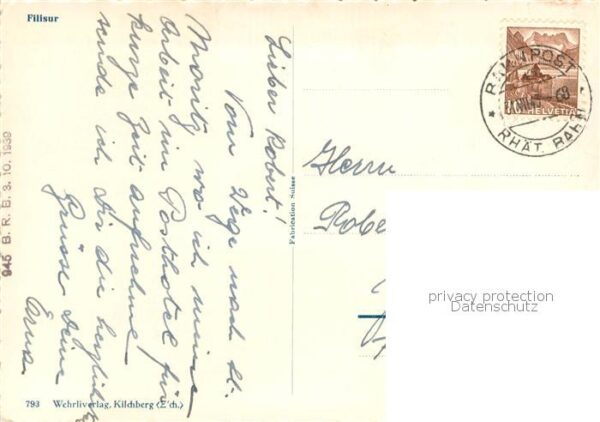 Filisur
Lieber Robert!
Vom Wege nach St.
Moritz, wo ich meine
Arbeit im Posthotel für
kurze Zeit aufnehme
sende ich Dir die herzlichst
Grüsse Deine
945 B. R. B. 3. 10. 1939
793 Wehrliverlag, Kilchberg (Z'ch.)
Fabrication Suisse
BAHNPOST
RHÄT. BAHN
HELVETIA
Herrn
Robe
privacy protection
Datenschutz